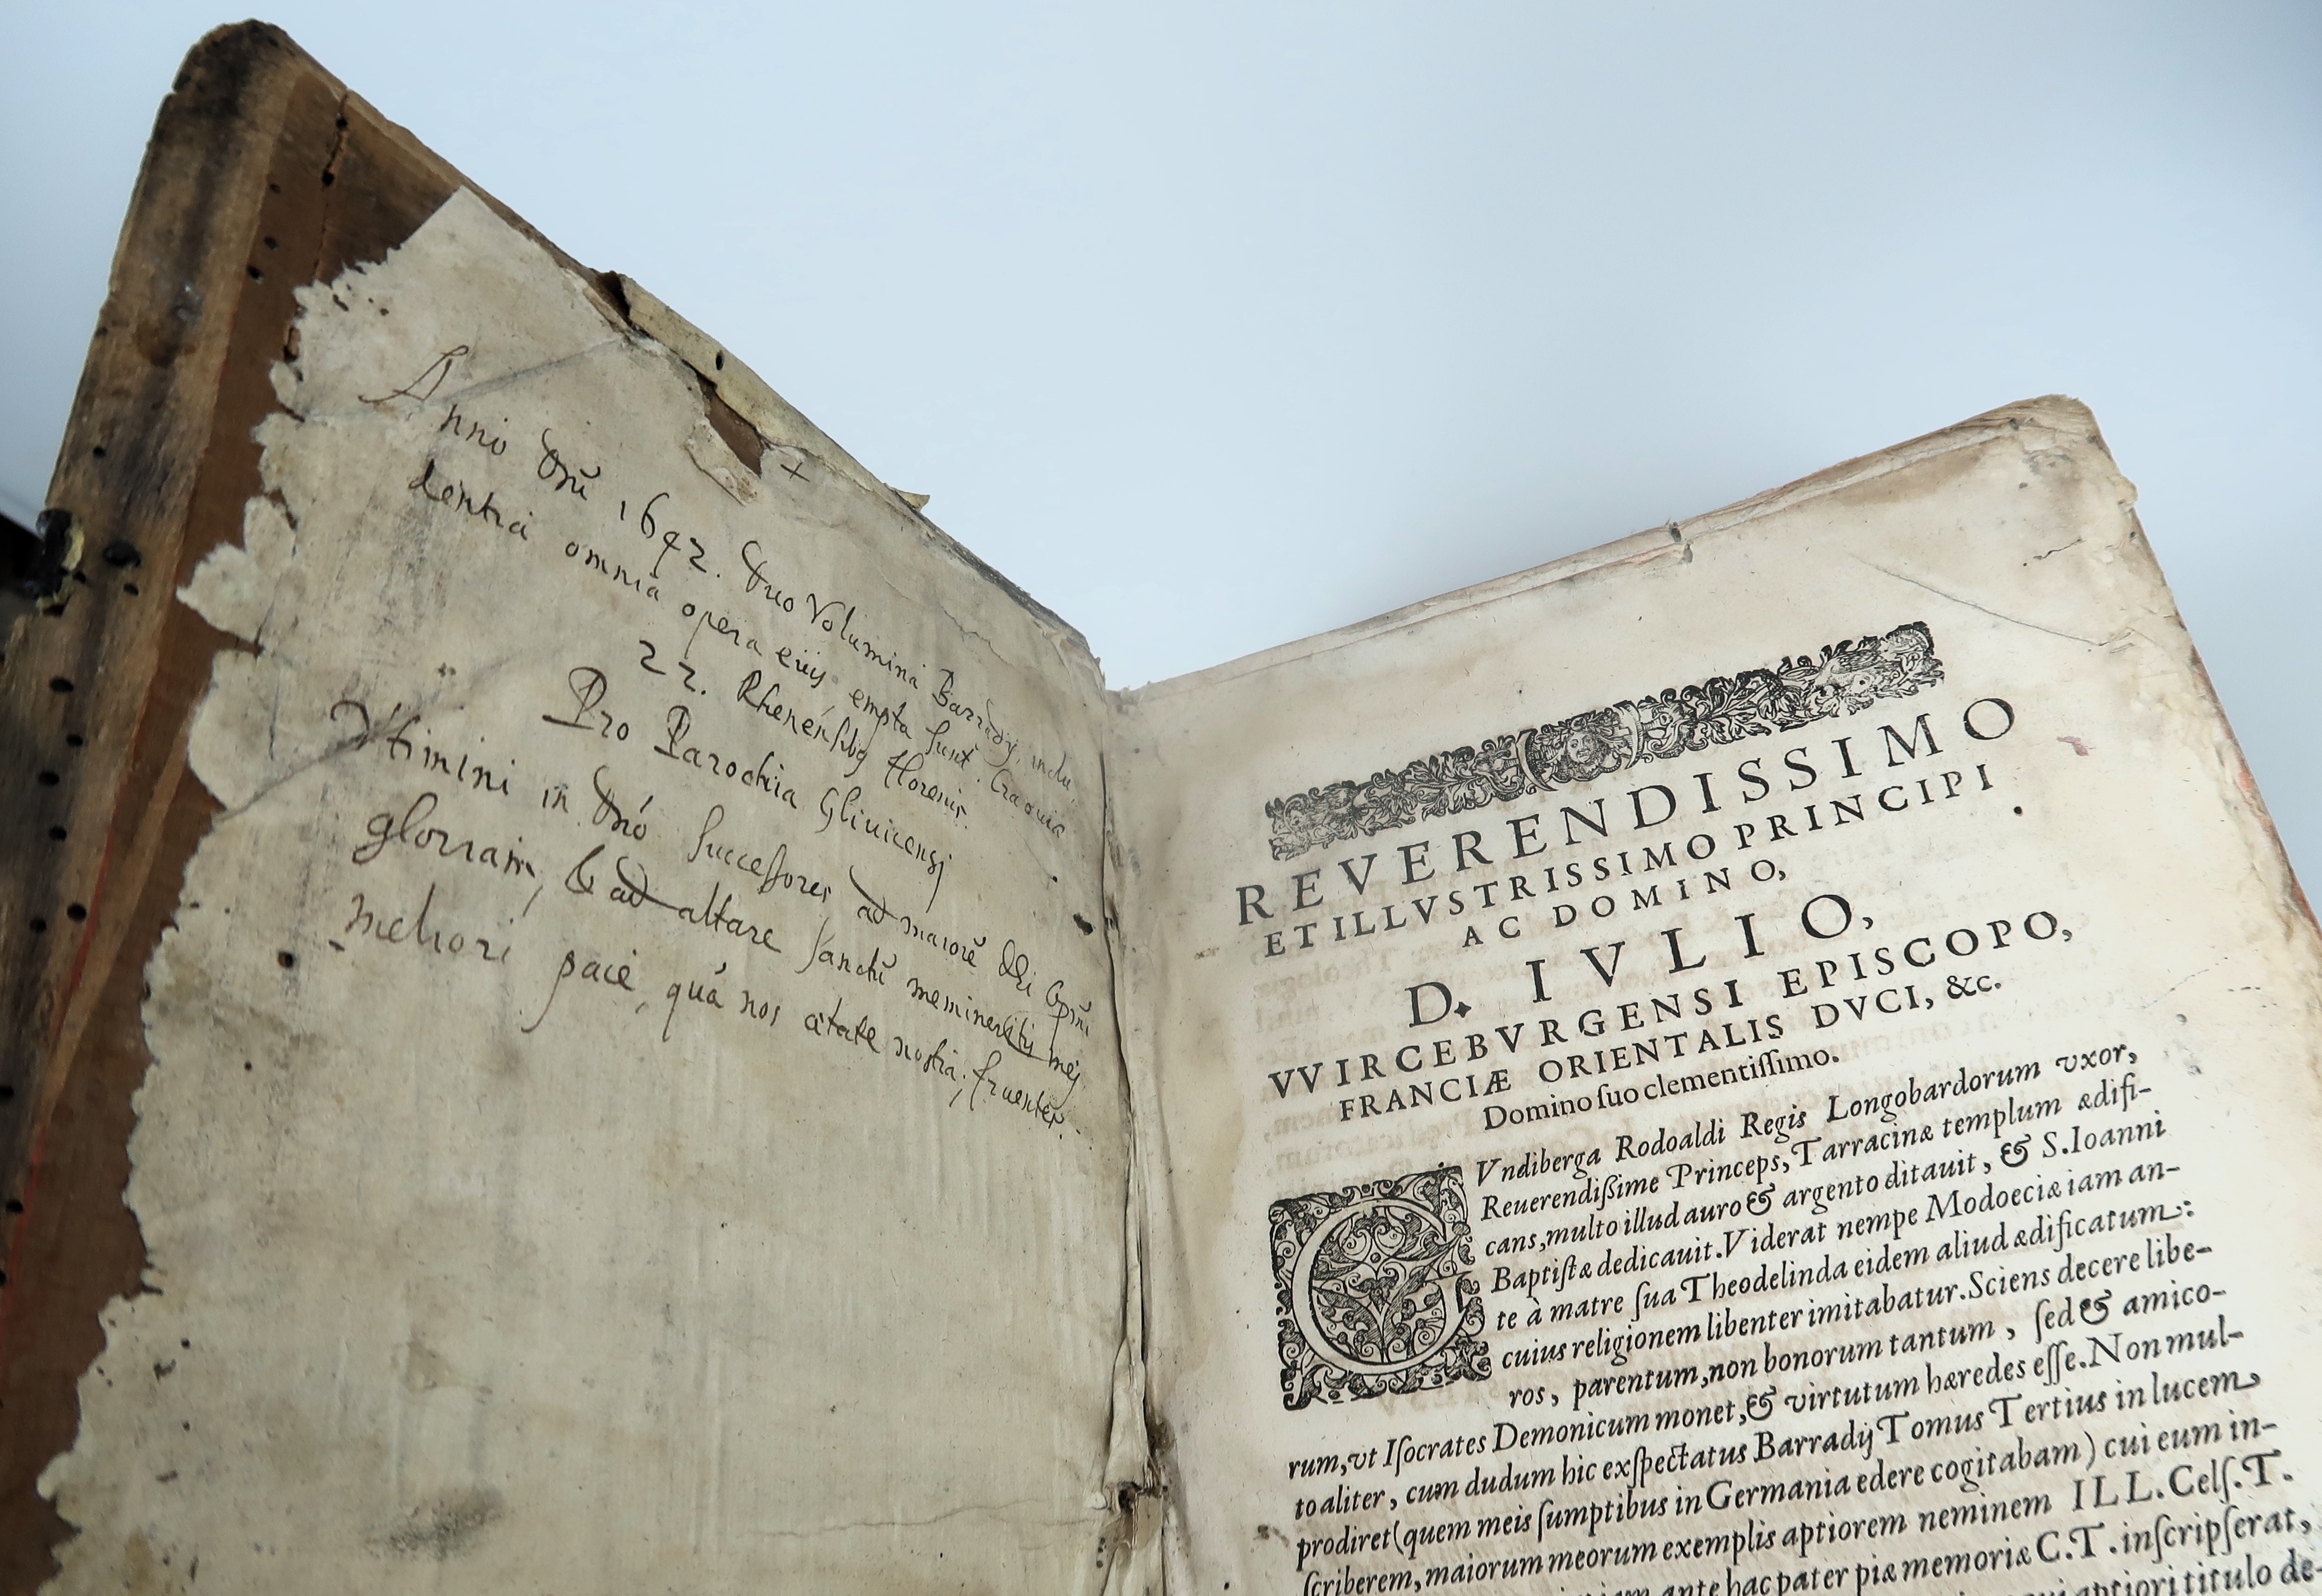 Anno Dñi 1642. Duo Volumina Barradij, inclu-
dentia omnia opera eius, empta sunt. Cracovia
22. Rhenensibg florenis.
Pro Parochia Gliuicensi
Vtimini in Dño Successores ad maiorē Dei Opti
gloriam, & ad altare Sanctū mementote mej
meliori pace, quá nos ætate nostra, fruentes.
REVERENDISSIMO
ET ILLVSTRISSIMO PRINCIPI
AC DOMINO,
D. IVLIO,
VVIRCEBVRGENSI EPISCOPO,
FRANCIÆ ORIENTALIS DVCI, &c.
Domino ſuo clementiſſimo.
GVndiberga Rodoaldi Regis Longobardorum vxor,
Reuerendiſsime Princeps, Tarracinæ templum ædifi-
cans, multo illud auro & argento ditauit, & S. Ioanni
Baptiſtæ dedicauit. Viderat nempe Modoeciæ iam an-
te à matre ſua Theodelinda eidem aliud ædificatum:
cuius religionem libenter imitabatur. Sciens decere libe-
ros, parentum, non bonorum tantum, ſed & amico-
rum, vt Iſocrates Demonicum monet, & virtutum hæredes eſſe. Non mul-
to aliter, cum dudum hic exſpectatus Barradij Tomus Tertius in lucem
prodiret (quem meis ſumptibus in Germania edere cogitabam) cui eum in-
ſcriberem, maiorum meorum exemplis aptiorem neminem ILL. Celſ. T.
ante hac pater piæ memoriæ C. T. inſcripſerat,
aptiori titulo de